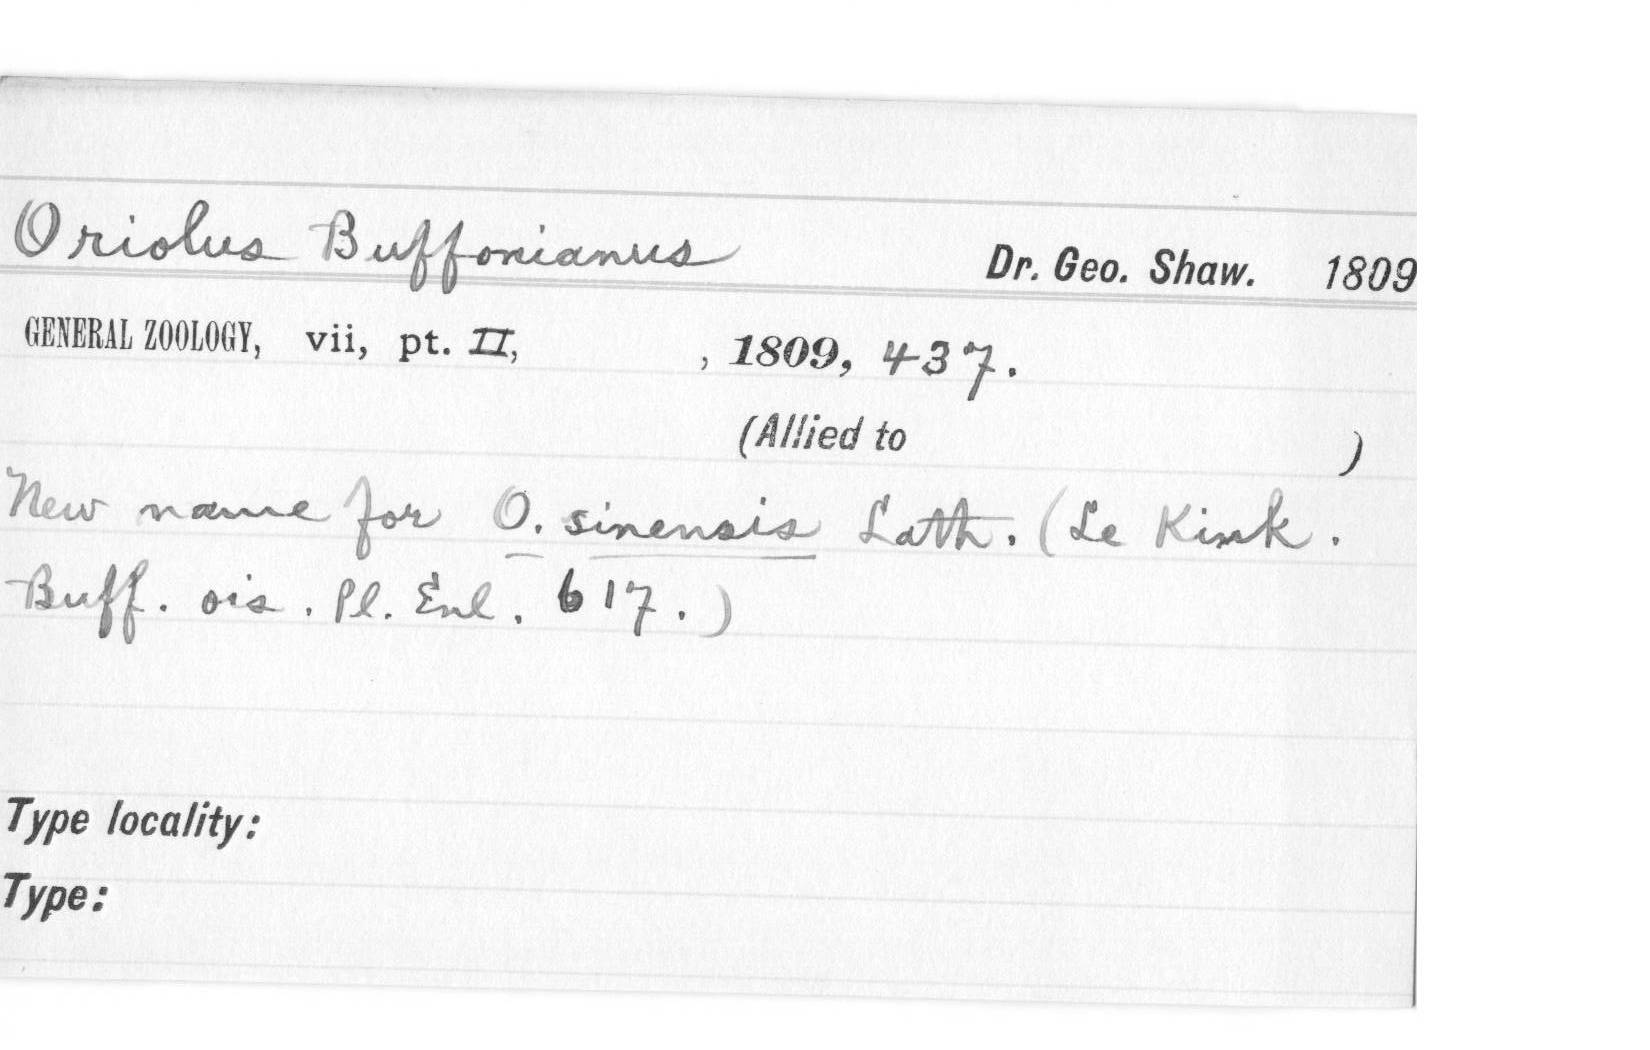 Oriolus Buffonianus Dr. Geo. Shaw. 1809
GENERAL ZOOLOGY, vii, pt. II, , 1809, 437.
(Allied to )
New name for O. sinensis Lath. (Le Kink.
Buff. ois. Pl. Enl. 617.)
Type locality:
Type: